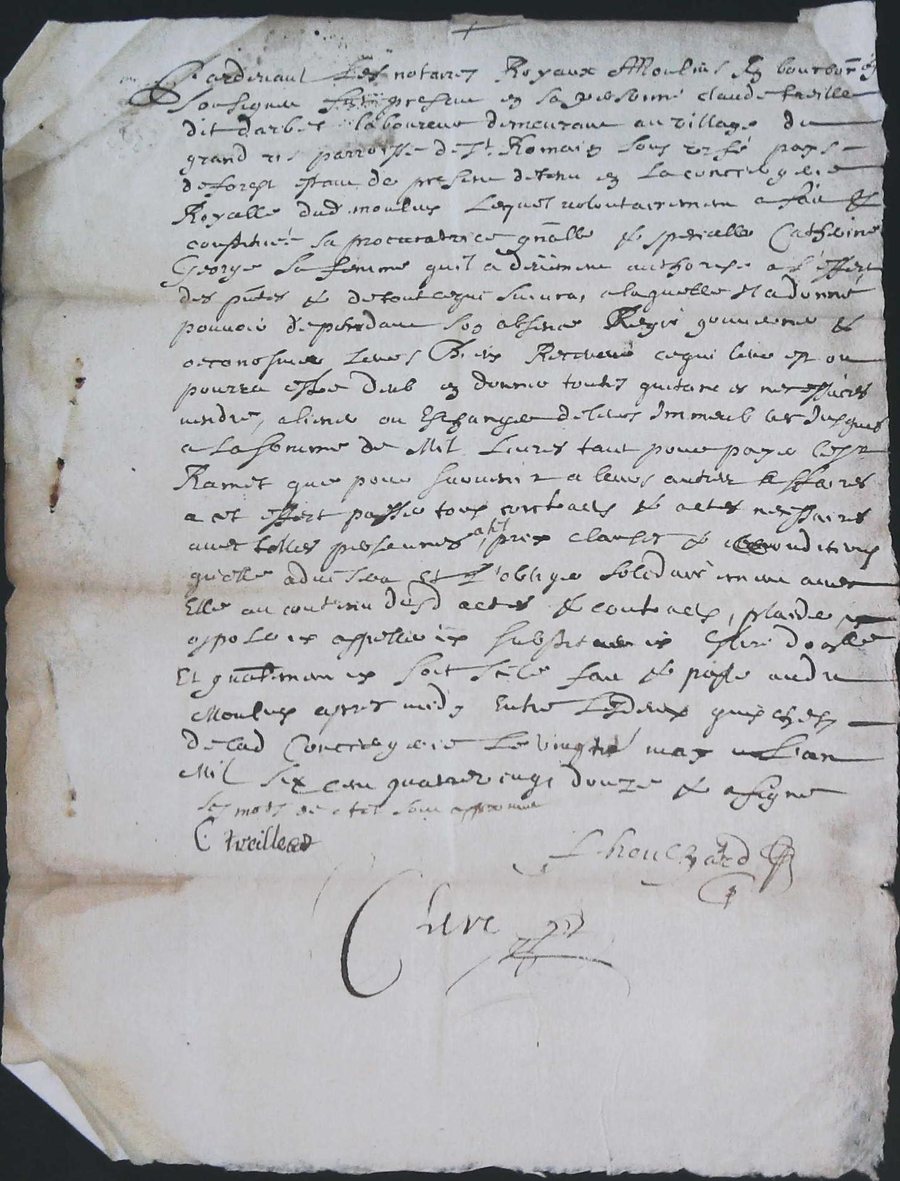 Pardevant Les notaires Royaux A Moulins En bourbonois
Sousignes fut present en sa personne claude treille
dit darbes laboureur demeurant au village du
grand ris parroisse de St Romain sous urfé pays
de forest estant de present detenu en La conciergerie
Royalle dud moulins Lequel volontairement a fait &
constitué sa procuratrice gnalle & specialle Catherine
George sa femme quil a deüement authorisé a l'effect
des pntes & de tout ce qui suivra, a laquelle Il a donné
pouvoir de pendant son absence Regir gouverner &
oeconosmer Leurs Biens Recevoir ce qui leur est ou
pourra estre deub en donner toutes quitances necessaires
vendre, aliener ou Eschanger de leurs Immeubles Jusques
a La somme de Mil Livres tant pour payer
que pour survenir a leurs autres affaires
a cet effect passer tous contracts & actes nessaires
avec telles personnes, a tel prix clauses & conditions
quelle advisera Et s'obliger solidairement avec
Elle au contenu desd actes & contracts, plaider
opposer appeller substituer Eslire domicille
Et gnallement Fait & passé aud
Moulins apres midy Entre Les deux guichetz
de lad Conciergerie Le vingt may Lan
Mil six cent quatrevingt douze & a signé
Les mots de a tel sont approuvé
C treille
Chouczard
Cleve